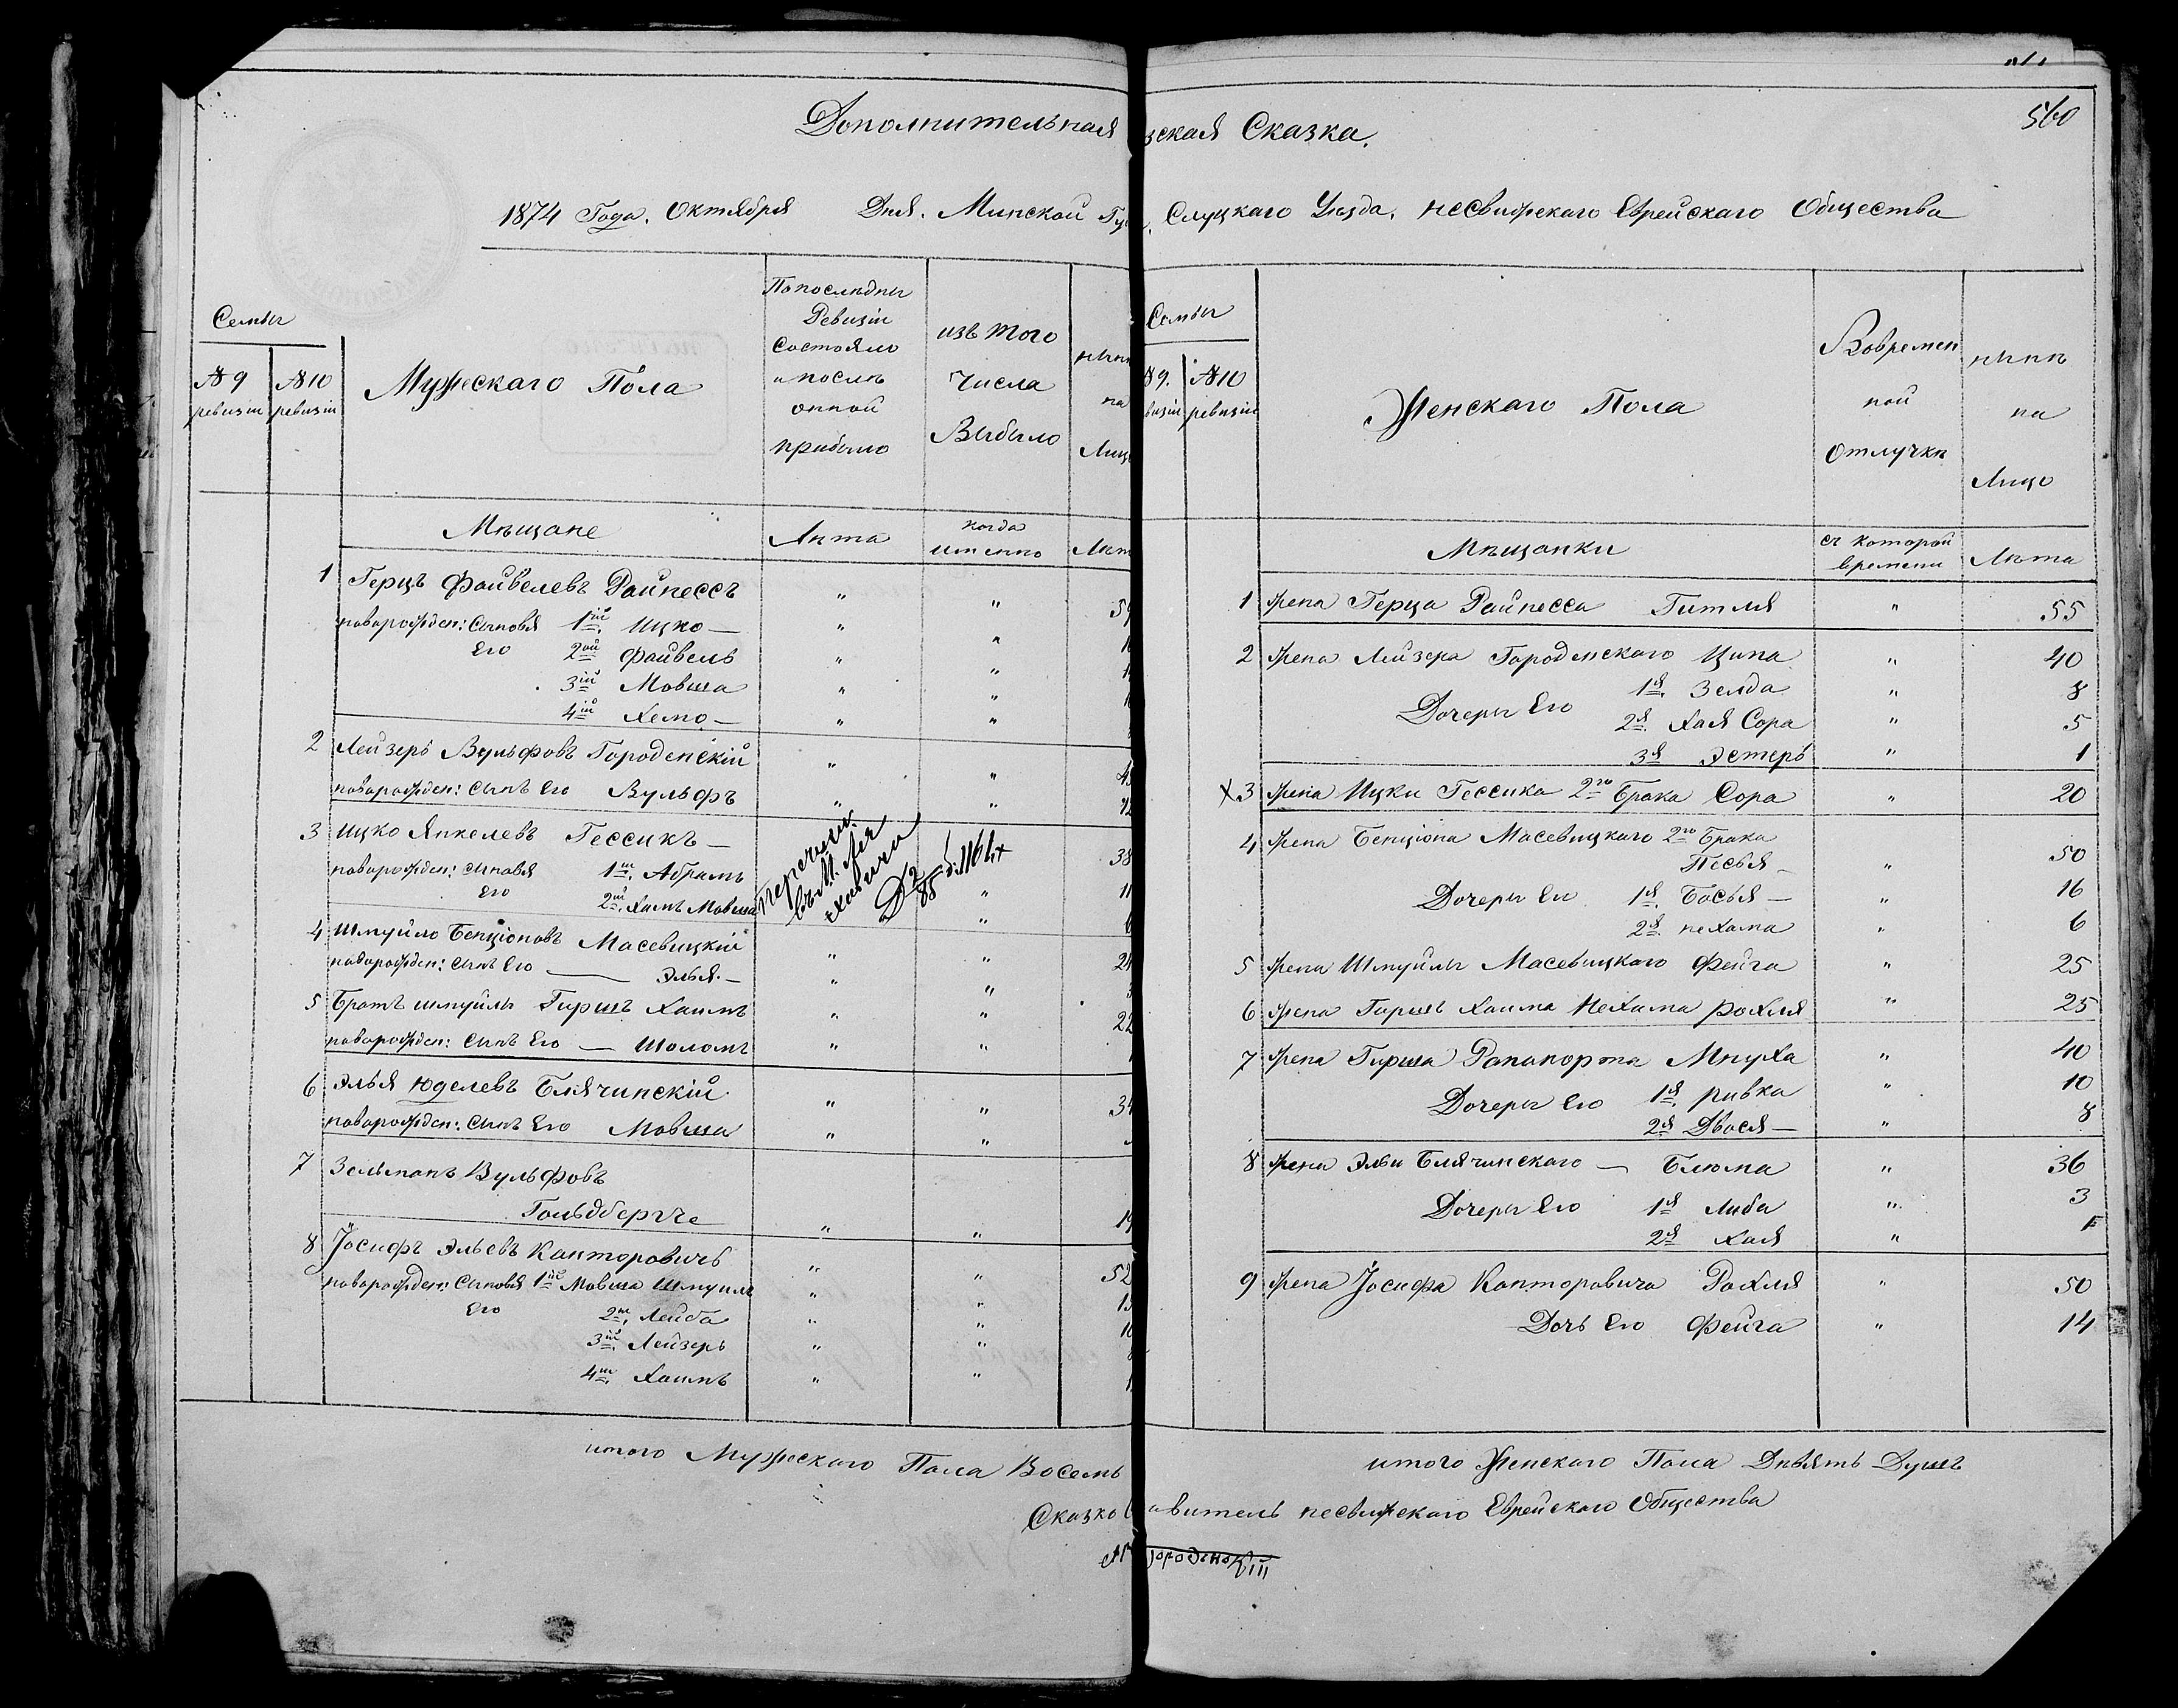 560
Дополнительная зская Сказка.
1874 Года. Октября Дня. Минской Гу Слуцкаго Уѣзда, Несвижскаго Еврейскаго Общества
Семьи
№ 9 ревизіи
№ 10 ревизіи
Мужескаго Пола
По послѣдни
Ревизіи
состояло
и послѣ
онной
прибыло
изъ того
числа
Выбыло
нынѣ
на
Лицо
Мѣщане
Лѣта
когда
именно
Лѣт
1 Герцъ Файвелевъ Райнессъ 59
новорожден: Сыновя 1ій Ицко —
Его 2ой Файвель
3ій Мовша
4ій Хемо —
2 Лейзеръ Вульфовъ Городенскій
новорожден: Сынъ Его Вульфъ 12
3 Ицко Янкелевъ Гессикъ — 38
новорожден: Сыновя 1й Абрамъ 11
Его 2ій Хаимъ Мовша 6
Перечисл.
въ М. Ля
ховичи
4 Шмуйло Бенціоновъ Масевицкій 24
новорожден: Сынъ Его — Элья —
5 Братъ Шмуйлы Гиршъ Хаимъ 22
новорожден: Сынъ Его — Шоломъ
6 Элья Юделевъ Блячинскій 34
новорожден: Сынъ Его Мовша
7 Зельманъ Вульфовъ
Гольдбергче 19
8 Іосифъ Эльевъ Канторовичъ 52
новорожден: Сыновя 1ій Мовша Шмуилъ 15
Его 2й Лейба 10
3ій Лейзеръ 8
4й Хаимъ 1
итого Мужескаго Пола Восемь
Семьи
№9. визіи
№10 ревизіи
Женскаго Пола
Вовремен
ной
Отлучкѣ
нынѣ
на
Лицо
Мѣщанки
съ которой
времени
Лѣта
1 Жена Герца Райнесса Гитля " 55
2 Жена Лейзера Городенскаго Ципа " 40
Дочеры Его 1я Зелда " 8
2я Хая Сора " 5
3я Эстеръ " 1
х3 Жена Ицки Гессика 2го Брака Сора " 20
4 Жена Бенціона Масевицкаго 2го Брака
Песья — " 50
Дочеры Его 1я Басья — " 16
2я Нехама " 6
5 Жена Шмуйлы Масевицкаго Фейга " 25
6 Жена Гиршъ Хаима Нехама Рохля " 25
7 Жена Гирша Рапапорта Мнуха " 40
Дочеры Его 1я Ривка " 10
2я Двося — " 8
8 Жена Эльи Блячинскаго — Блюма " 36
Дочеры Его 1я Либа " 3
2я Хая "
9 Жена Іосифа Канторовича Рохля " 50
Дочь Его Фейга " 14
итого Женскаго Пола Девять Душъ
Сказко авитель Несвижскаго Еврейскаго Общества
ороденскій